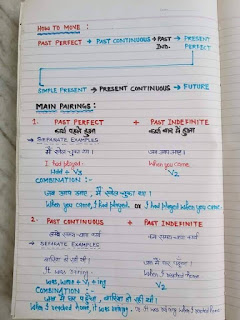 HOW TO MOVE :
PAST PERFECT → PAST CONTINUOUS → PAST IND. → PRESENT PERFECT
SIMPLE PRESENT → PRESENT CONTINUOUS → FUTURE
MAIN PAIRINGS :
1. PAST PERFECT + PAST INDEFINITE
कार्य पहले हुआ कार्य बाद में हुआ
→ SEPARATE EXAMPLES
मैं खेल चुका था। जब आप आए।
I had played. When you came.
Had + V3 V2
COMBINATION :-
जब आप आए, मैं खेल चुका था।
When you came, I had played. or I had played when you came.
2. PAST CONTINUOUS + PAST INDEFINITE
→ SEPARATE EXAMPLES
बारिश हो रही थी।
It was raining. When I reached home
was, were + V1 + ing V2
COMBINATION :-
When I reached home, it was raining.